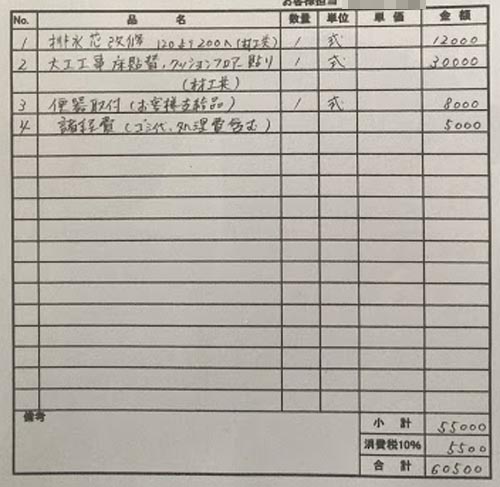 お客様担当
No. 品名 数量 単位 単価 金額
1 排水芯改修 120より200へ(材工共) 1 式 12000
2 大工工事 床貼替、クッションフロアー貼り 1 式 30000
(材工共)
3 便器取付(お客様支給品) 1 式 8000
4 諸経費(ゴミ代、処理費含む) 5000
備考
小計 55000
消費税10% 5500
合計 60500